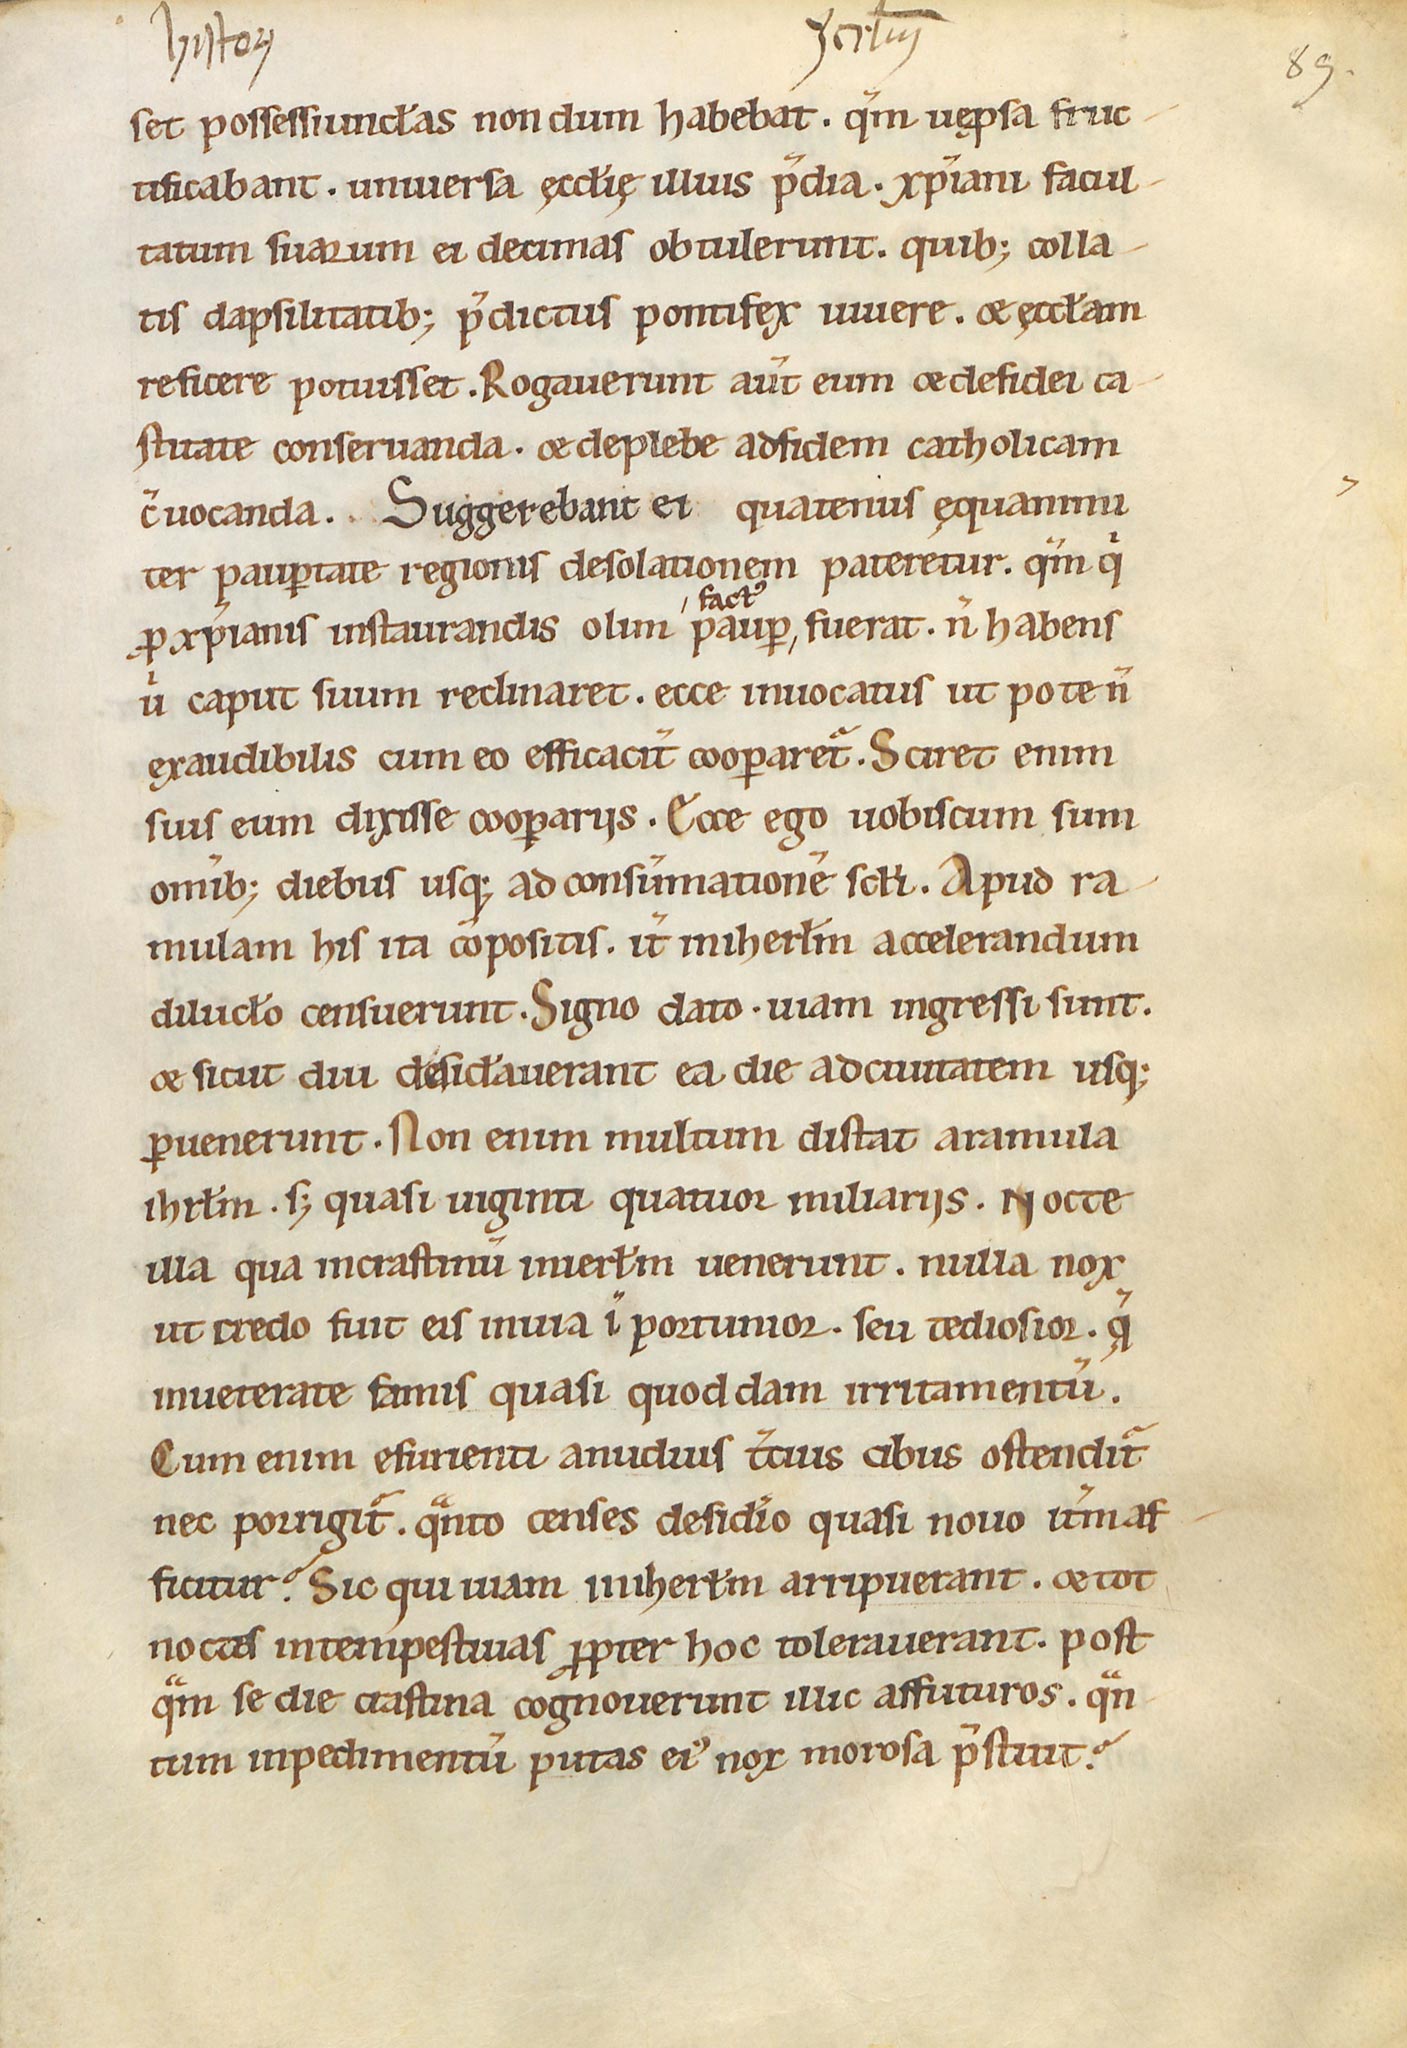 histor
89.
set possessiunc̄las non dum habebat. qm̄ uępsa fruc
tificabant. uniuersa ęcclīę illius p̄dia. xp̄iani facul
tatum suarum ei decimas obtulerunt. quib; colla
tis dapsilitatib; p̄dictus pontifex uiuere. & ęccl̄am
reficere potuisset. Rogauerunt aut̄ eum & defidei ca
stitate conseruanda. & deplebe adfidem catholicam
c̄uocanda. Suggerebant ei quatenus ęquanimi
ter paup̱tate regionis desolationem pateretur. qm̄ qͥ
ꝓ xp̄ianis instaurandis olim fact᾽
paup̱, fuerat. n̄ habens
uͥ caput suum reclinaret. ecce inuocatus ut pote n̄
exaudibilis cum eo efficacit̄ coop̱aret᷑. Sciret enim
suis eum dixisse coop̱arijs. Ecce ego uobiscum sum
omīb; diebus usq; ad consūmationē sc̄li. Apud ra
mulam his ita cōpositis. it̄ inihērl̄m accelerandum
diluc̄lo censuerunt. Signo dato. uiam ingressi sunt.
& sicut diu desid̄auerant ea die adciuitatem usq;
p̱uenerunt. Non enim multum distat aramula
ihrl̄m. s; quasi uiginti quatuor miliarijs. Nocte
illa qua incrastinū iniērl̄m uenerunt. nulla nox
ut credo fuit eis inuia īportunior. seu tediosior. qͣ
inueterate famis quasi quoddam irritamentū.
Cum enim esurienti anudius t̄cius cibus ostendit᷑
nec porrigit᷑. qͣnto censes desid̄io quasi nouo it̄im af
ficitur? Sic qui uiam inihērl̄m arripuerant. & tot
noctes intempestiuas ꝓpter hoc tolerauerant. post
qͣm se die crastina cognouerunt illic affuturos. qͣn
tum inpedimentū putas ei᾽ nox morosa p̄stitit?